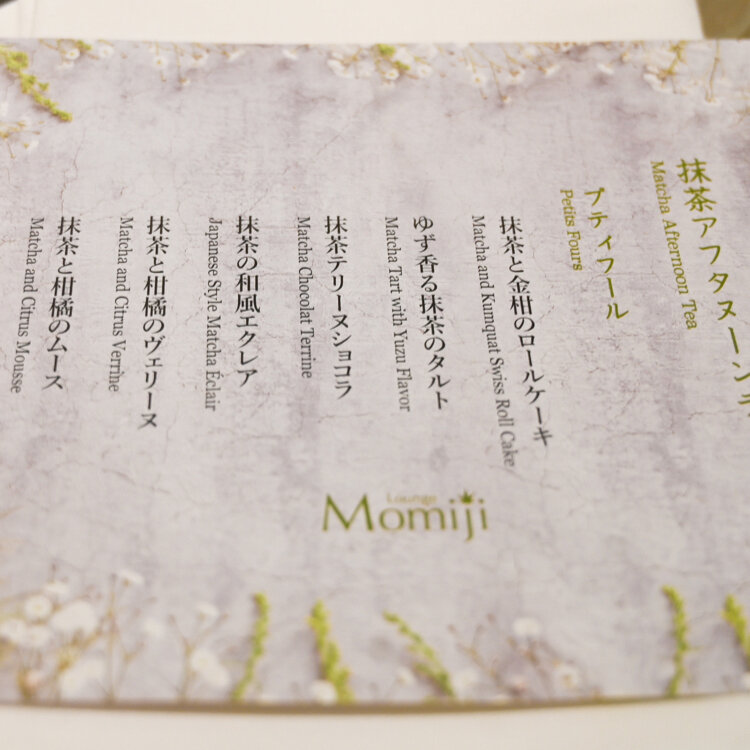 抹茶アフタヌーンテ
Matcha Afternoon Tea
プティフール
Petits Fours
抹茶と金柑のロールケーキ
Matcha and Kumquat Swiss Roll Cake
ゆず香る抹茶のタルト
Matcha Tart with Yuzu Flavor
抹茶テリーヌショコラ
Matcha Chocolat Terrine
抹茶の和風エクレア
Japanese Style Matcha Éclair
抹茶と柑橘のヴェリーヌ
Matcha and Citrus Verrine
抹茶と柑橘のムース
Matcha and Citrus Mousse
Lounge
Momiji